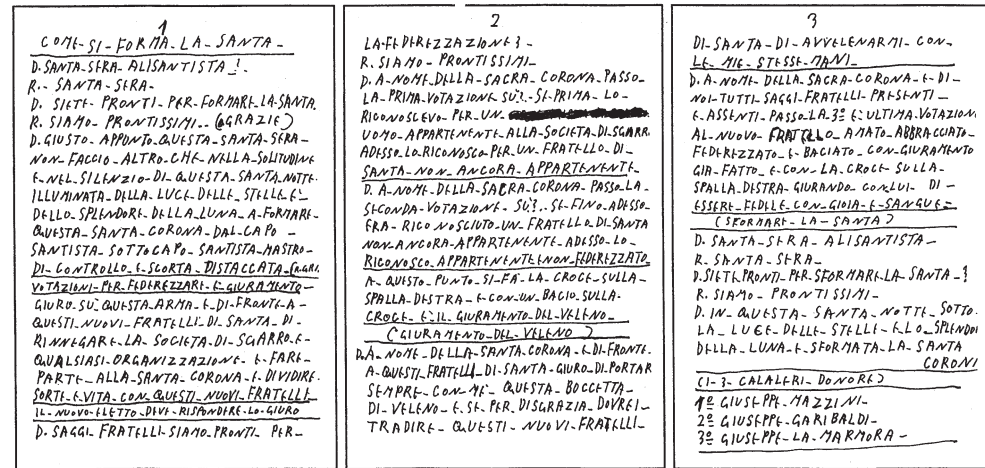 1
COME-SI-FORMA-LA-SANTA-
D. SANTA-SERA-ALISANTISTA-!-
R.- SANTA-SERA-
D. SIETE-PRONTI-PER-FORMARE-LA-SANTA
R. SIAMO-PRONTISSIMI- (GRAZIE)
D. GIUSTO-APPUNTO-QUESTA-SANTA-SERA-
NON-FACCIO-ALTRO-CHE-NELLA-SOLITUDINE
E-NEL-SILENZIO-DI-QUESTA-SANTA-NOTTE-
ILLUMINATA-DELLA-LUCE-DELLE-STELLE-E:-
DELLO-SPLENDORE-DELLA-LUNA-A-FORMARE-
QUESTA-SANTA-CORONA-DAL-CAPO-
SANTISTA-SOTTOCAPO-SANTISTA-MASTRO-
DI-CONTROLLO-E-SCORTA-DISTACCATA-
VOTAZIONI-PER-FEDEREZZARE-E-GIURAMENTO-
GIURO-SU-QUESTA-ARMA-E-DI-FRONTE-A-
QUESTI-NUOVI-FRATELLI-DI-SANTA-DI-
RINNEGARE-LA-SOCIETA-DI-SGARRO-E-
QUALSIASI-ORGANIZZAZIONE-E-FARE-
PARTE-ALLA-SANTA-CORONA-E-DIVIDIRE-
SORTE-E-VITA-CON-QUESTI-NUOVI-FRATELLI
IL-NUOVO-ELETTO-DEVE-RISPONDERE-LO-GIURO
D. SAGGI-FRATELLI-SIAMO-PRONTI-PER-
2
LA-FEDEREZZAZIONE?-
R. SIAMO-PRONTISSIMI-
D. A-NOME-DELLA-SACRA-CORONA-PASSO-
LA-PRIMA-VOTAZIONE-SU?.-SE-PRIMA-LO-
RICONOSCEVO-PER-UN-
UOMO-APPARTENENTE-ALLA-SOCIETA-DI-SGARR
ADESSO-LO-RICONOSCO-PER-UN-FRATELLO-DI-
SANTA-NON-ANCORA-APPARTENENTE-
D. A-NOME-DELLA-SACRA-CORONA-PASSO-LA-
SECONDA-VOTAZIONE-SU?-SE-FINO-ADESSO-
ERA-RICONOSCIUTO-UN-FRATELLO-DI-SANTA
NON-ANCORA-APPARTENENTE-ADESSO-LO-
RICONOSCO-APPARTENENTE NON-FEDEREZZATO
A-QUESTO-PUNTO-SI-FA-LA-CROCE-SULLA-
SPALLA-DESTRA-E-CON-UN-BACIO-SULLA-
CROCE-E:IL-GIURAMENTO-DEL-VELENO-
(GIURAMENTO-DEL-VELENO)
D. A-NOME-DELLA-SANTA-CORONA-E-DI-FRONTE-
A-QUESTI-FRATELLI-DI-SANTA-GIURO-DI-PORTAR
SEMPRE-CON-ME-QUESTA-BOCCETTA-
DI-VELENO-E-SE-PER-DISGRAZIA-DOVREI-
TRADIRE-QUESTI-NUOVI-FRATELLI-
3
DI-SANTA-DI-AVVELENARMI-CON-
LE-MIE-STESSE-MANI-
D. A-NOME-DELLA-SACRA-CORONA-E-DI-
NOI-TUTTI-SAGGI-FRATELLI-PRESENTI-
E-ASSENTI-PASSO-LA-3º-E:ULTIMA-VOTAZION
AL-NUOVO-FRATELLO-AMATO-ABBRACCIATO-
FEDEREZZATO-E-BACIATO-CON-GIURAMENTO
GIA-FATTO-E-CON-LA-CROCE-SULLA-
SPALLA-DESTRA-GIURANDO-CON-LUI-DI-
ESSERE-FEDELE-CON-GIOIA-E-SANGUE=
(SFORMARE-LA-SANTA)
D. SANTA-SERA-ALISANTISTA-
R. SANTA-SERA-
D. SIETE PRONTI-PER-SFORMARE-LA-SANTA-?
R. SIAMO-PRONTISSIMI-
D. IN-QUESTA-SANTA-NOTTE-SOTTO-
LA-LUCE-DELLE-STELLE-E-LO-SPLENDO
DELLA-LUNA-E-SFORMATA-LA-SANTA
CORONI
(I-3-CALALERI-DONORE)
1º GIUSEPPE-MAZZINI-
2º GIUSEPPE-GARIBALDI-
3º GIUSEPPE-LA-MARMORA-